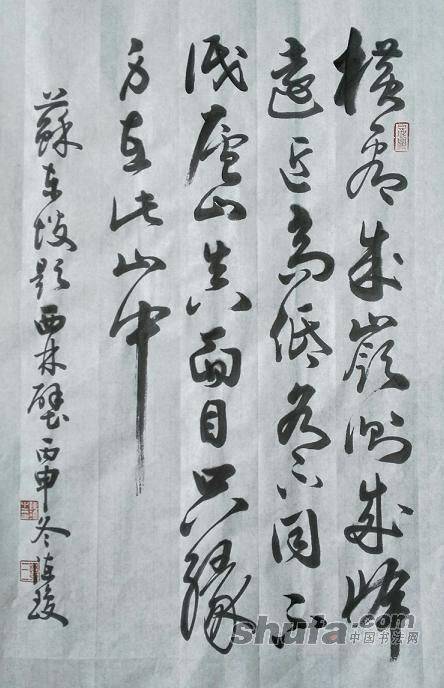 橫看成嶺側成峰
遠近高低各不同不
識廬山真面目只緣
身在此山中
蘇東坡題西林壁丙申冬
shufa.com
中国书法网